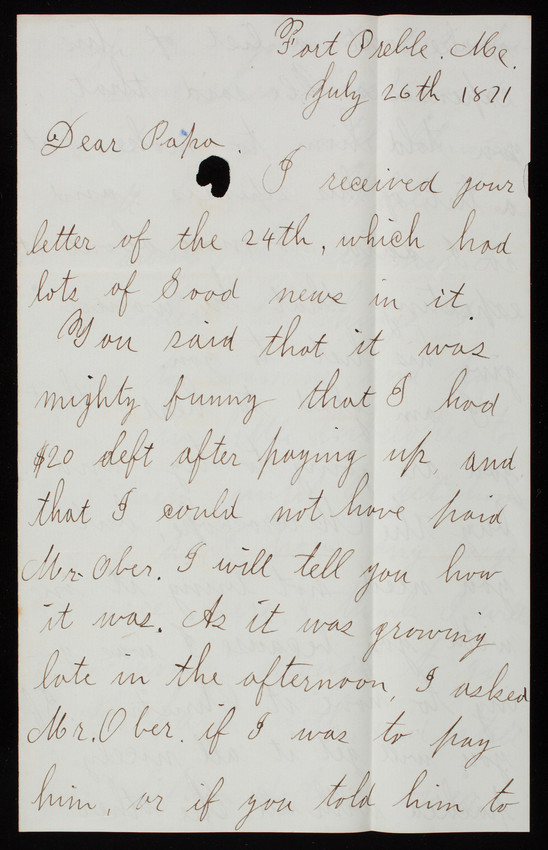 Fort Preble. Me.
July 26th 1871
Dear Papa.
I received your
letter of the 24th, which had
lots of Good news in it.
You said that it was
mighty funny that I had
$20 left after paying up, and
that I could not have paid
Mr. Ober. I will tell you how
it was. As it was growing
late in the afternoon, I asked
Mr. Ober. if I was to pay
him, or if you told him to